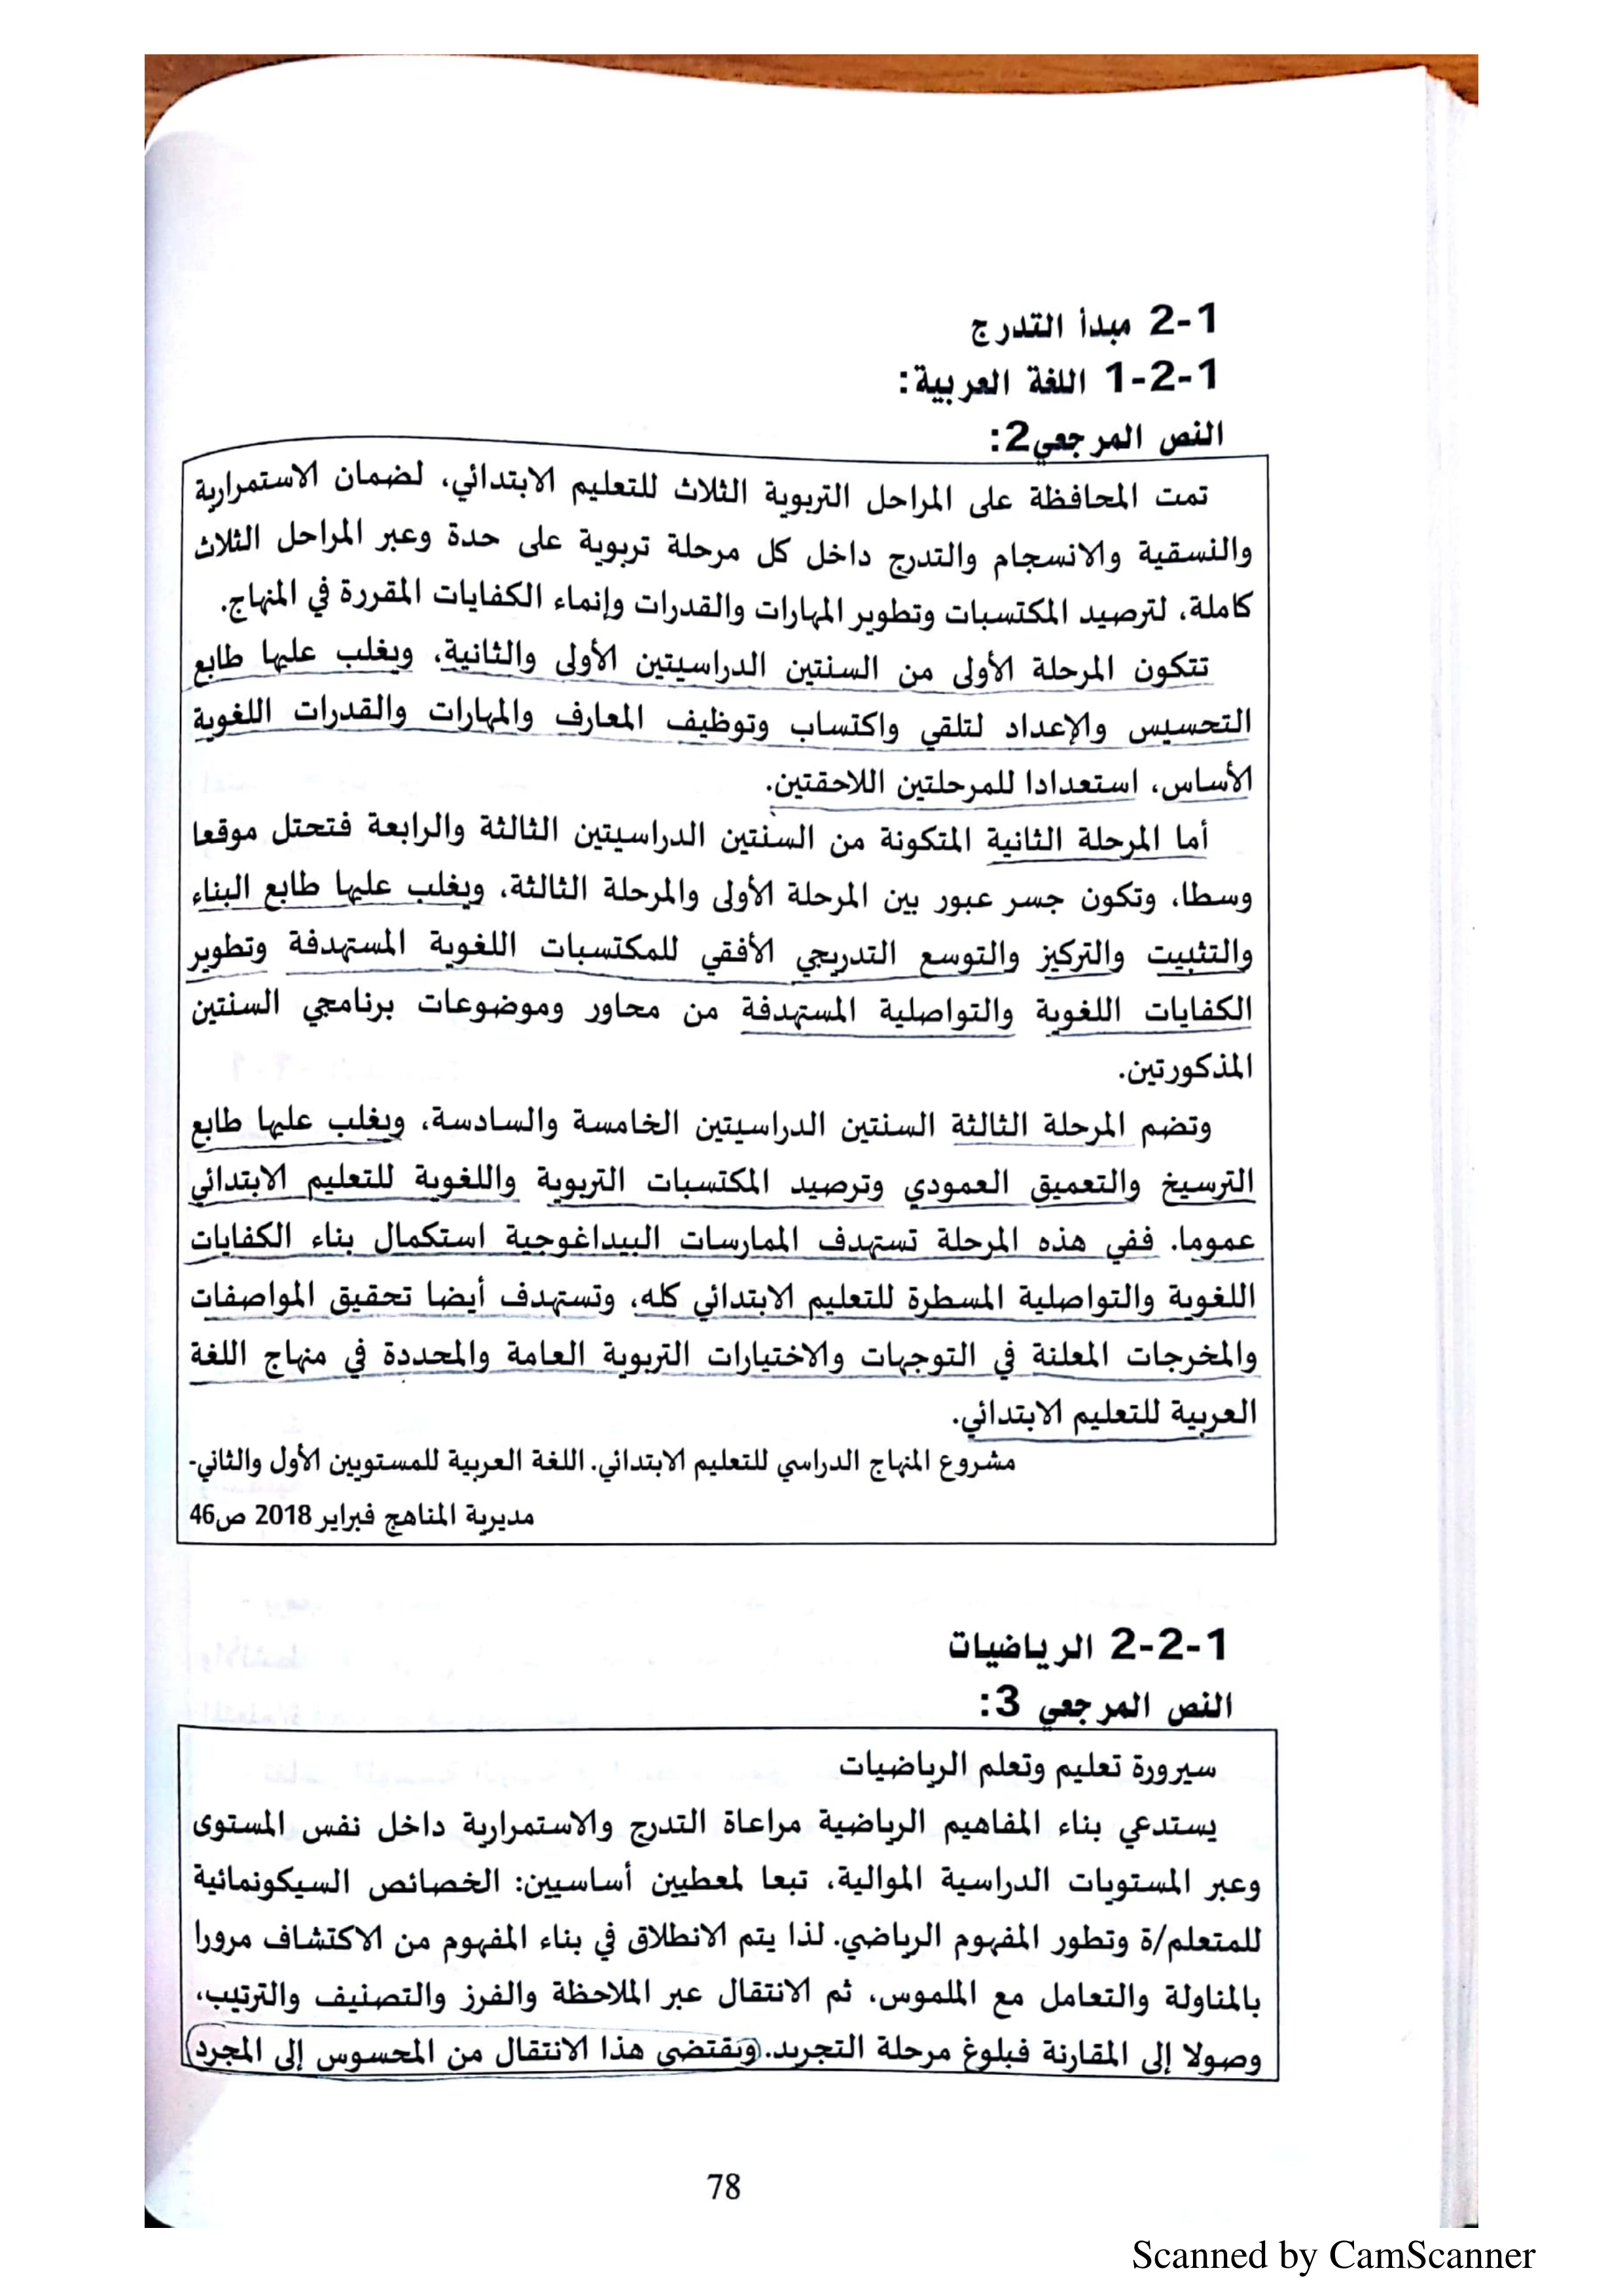 2-1 مبدأ التدرج
1-2-1 اللغة العربية:
النص المرجعي2:
تمت المحافظة على المراحل التربوية الثلاث للتعليم الابتدائي، لضمان الاستمرارية
والنسقية والانسجام والتدرج داخل كل مرحلة تربوية على حدة وعبر المراحل الثلاث
كاملة، لترصيد المكتسبات وتطوير المهارات والقدرات وإنماء الكفايات المقررة في المنهاج.
تتكون المرحلة الأولى من السنتين الدراسيتين الأولى والثانية، ويغلب عليها طابع
التحسيس والإعداد لتلقي واكتساب وتوظيف المعارف والمهارات والقدرات اللغوية
الأساس، استعدادا للمرحلتين اللاحقتين.
أما المرحلة الثانية المتكونة من السنتين الدراسيتين الثالثة والرابعة فتحتل موقعا
وسطا، وتكون جسر عبور بين المرحلة الأولى والمرحلة الثالثة، ويغلب عليها طابع البناء
والتثبيت والتركيز والتوسع التدريجي الأفقي للمكتسبات اللغوية المستهدفة وتطوير
الكفايات اللغوية والتواصلية المستهدفة من محاور وموضوعات برنامجي السنتين
المذكورتين.
وتضم المرحلة الثالثة السنتين الدراسيتين الخامسة والسادسة، ويغلب عليها طابع
الترسيخ والتعميق العمودي وترصيد المكتسبات التربوية واللغوية للتعليم الابتدائي
عموما. ففي هذه المرحلة تستهدف الممارسات البيداغوجية استكمال بناء الكفايات
اللغوية والتواصلية المسطرة للتعليم الابتدائي كله، وتستهدف أيضا تحقيق المواصفات
والمخرجات المعلنة في التوجهات والاختيارات التربوية العامة والمحددة في منهاج اللغة
العربية للتعليم الابتدائي.
مشروع المنهاج الدراسي للتعليم الابتدائي. اللغة العربية للمستويين الأول والثاني-
مديرية المناهج فبراير 2018 ص46
2-2-1 الرياضيات
النص المرجعي 3:
سيرورة تعليم وتعلم الرياضيات
يستدعي بناء المفاهيم الرياضية مراعاة التدرج والاستمرارية داخل نفس المستوى
وعبر المستويات الدراسية الموالية، تبعا لمعطيين أساسيين: الخصائص السيكونمائية
للمتعلم/ة وتطور المفهوم الرياضي. لذا يتم الانطلاق في بناء المفهوم من الاكتشاف مرورا
بالمناولة والتعامل مع الملموس، ثم الانتقال عبر الملاحظة والفرز والتصنيف والترتيب،
وصولا إلى المقارنة فبلوغ مرحلة التجريد. ويقتضي هذا الانتقال من المحسوس إلى المجرد
78
Scanned by CamScanner